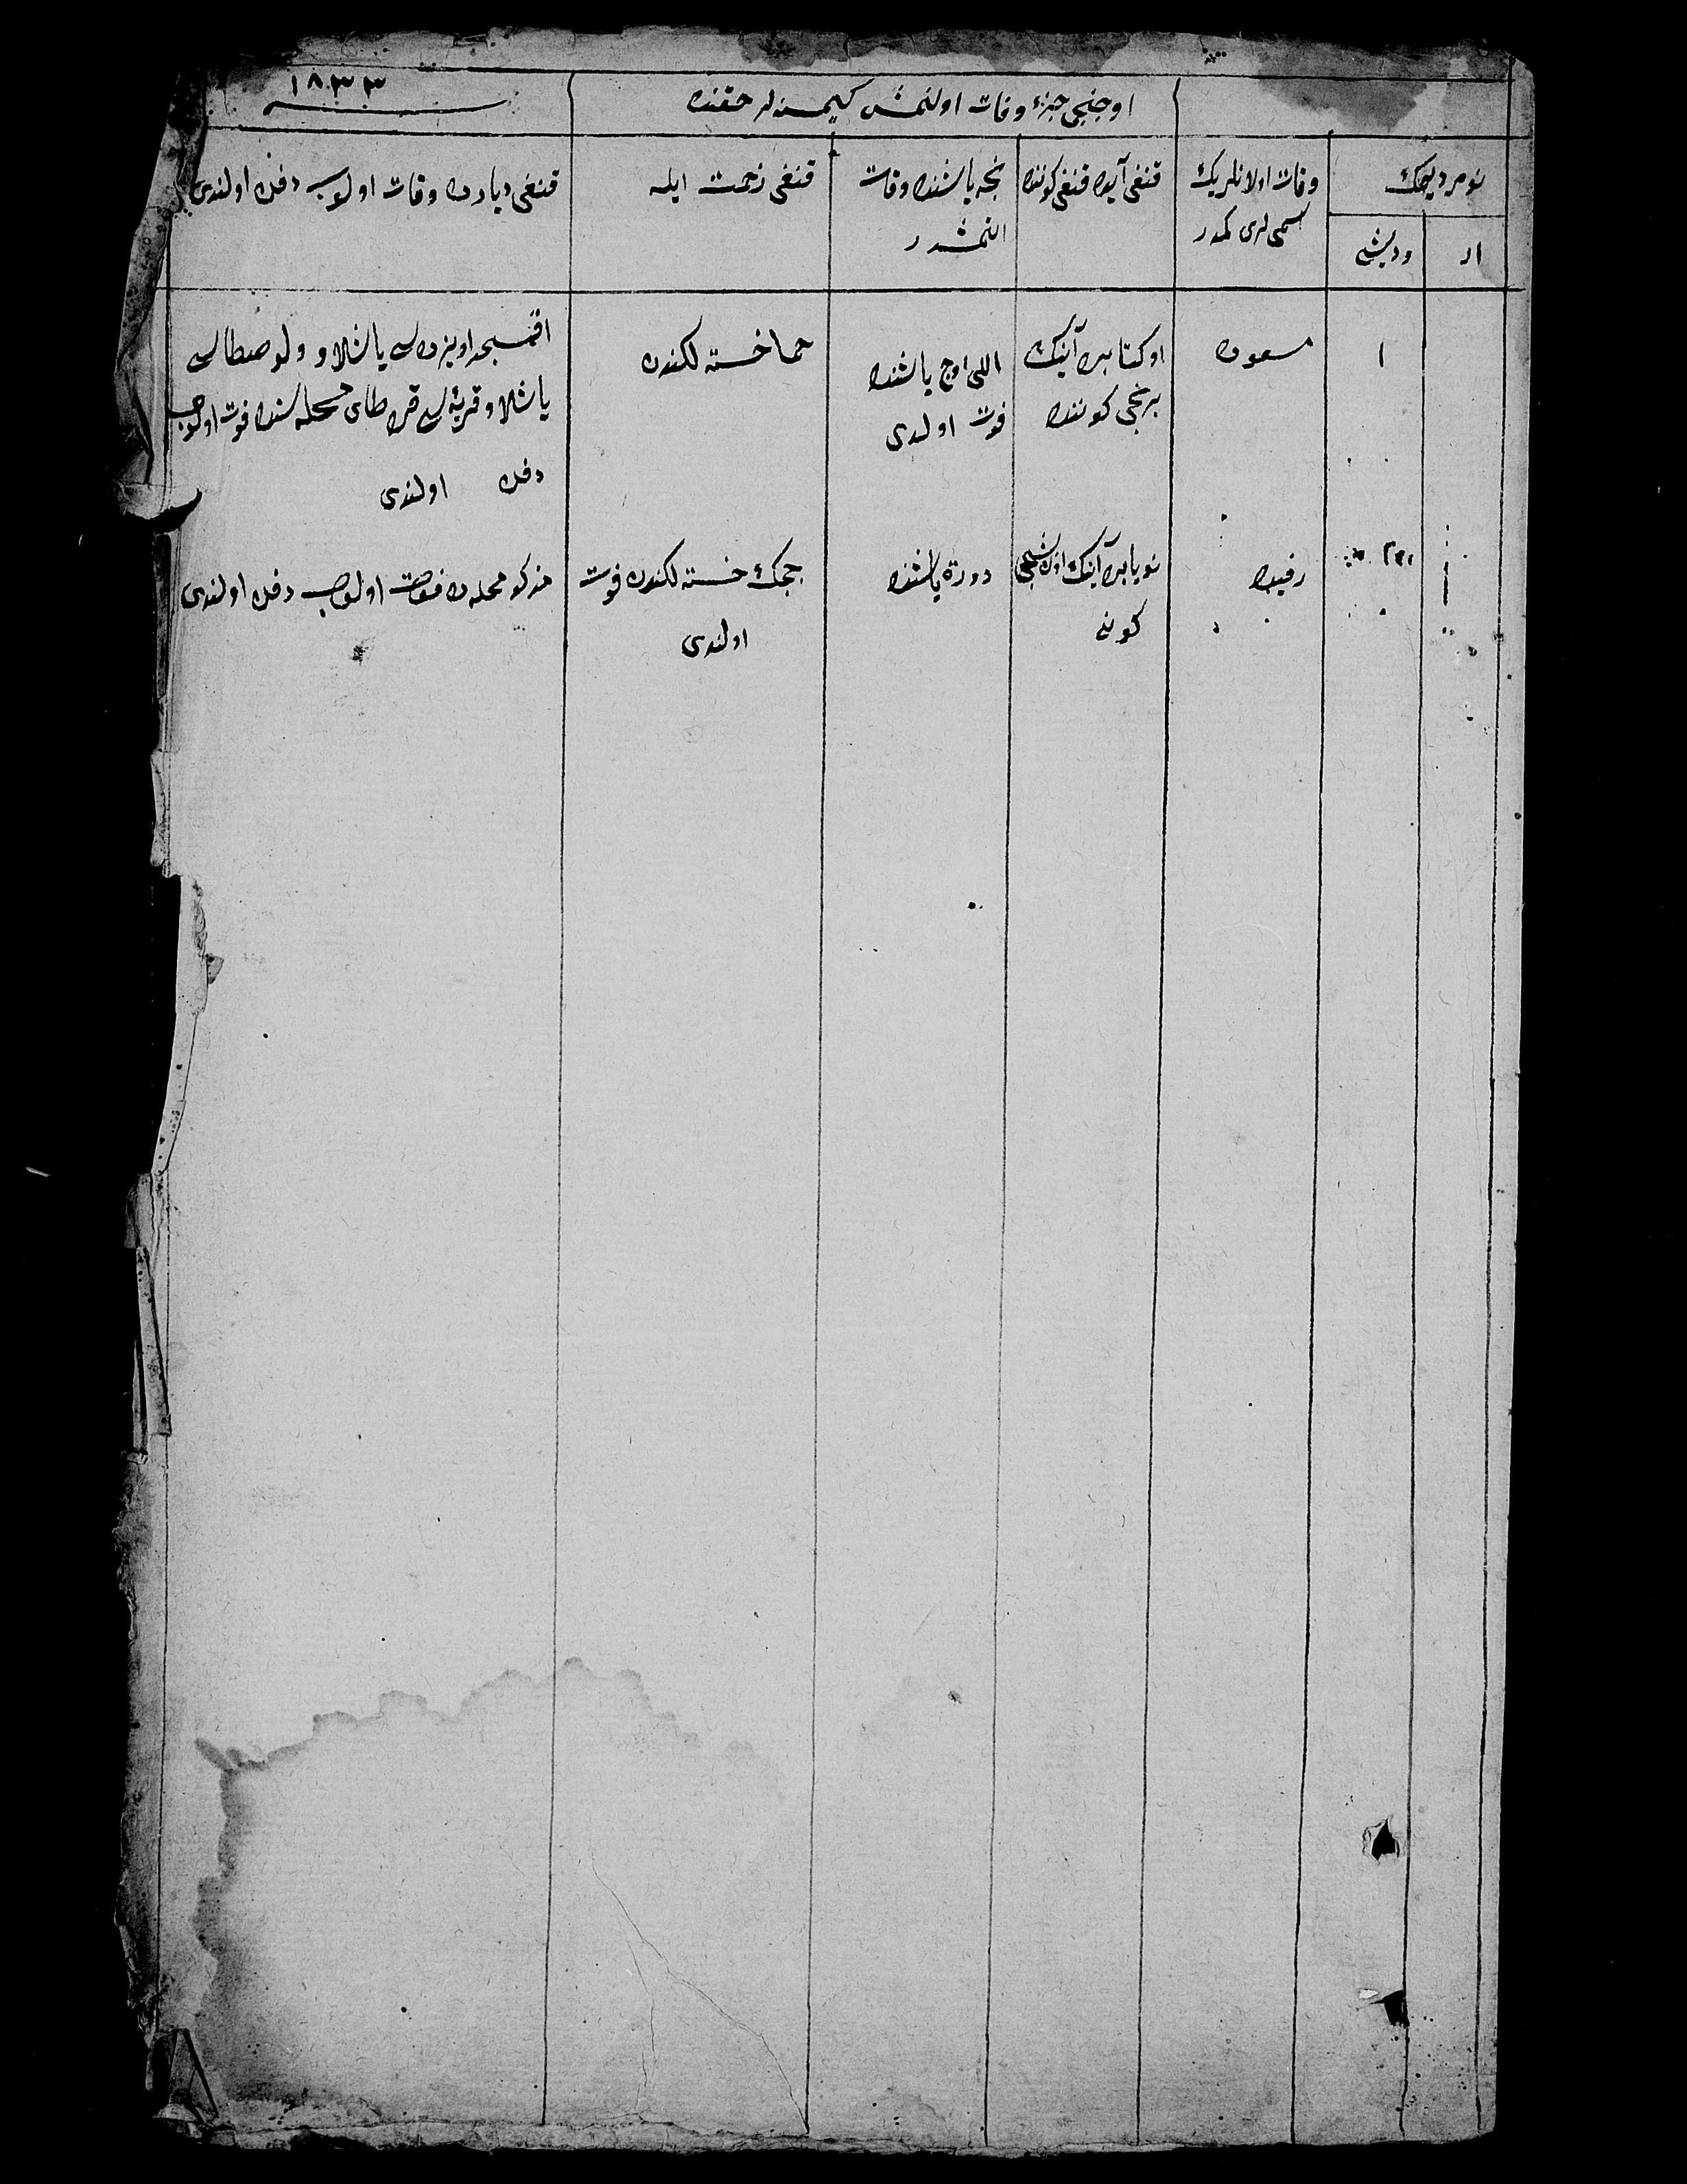 اوجنجی جزء وفات اولنمش کیمسنه‌لر حقنده
١٨٣٣
نومردیجک
ار
ودیشی
وفات اولانلریک
اسمی لری کمدر
قنغی آیده قنغی کوننده
نجه یاشنده وفات
اتمشدر
قنغی زحمت ایله
قنغی دیارده وفات اولوب دفن اولندی
١
مسعود
اوکتابر آینک
برنجی کوننده
اللی اوج یاشنده
فوت اولدی
حما خسته لکندن
اقمسجد اویزداسی یاشلاو ولوصطاسی
یاشلاو قریه‌سی قرهطای محله‌سنده فوت اولوب
دفن اولندی
٢
رفیده
نویابر آینک اون بشنجی
کونی
دورت یاشنده
چچک خسته لکندن فوت
اولندی
مذکور محله‌ده فوت اولوب دفن اولندی